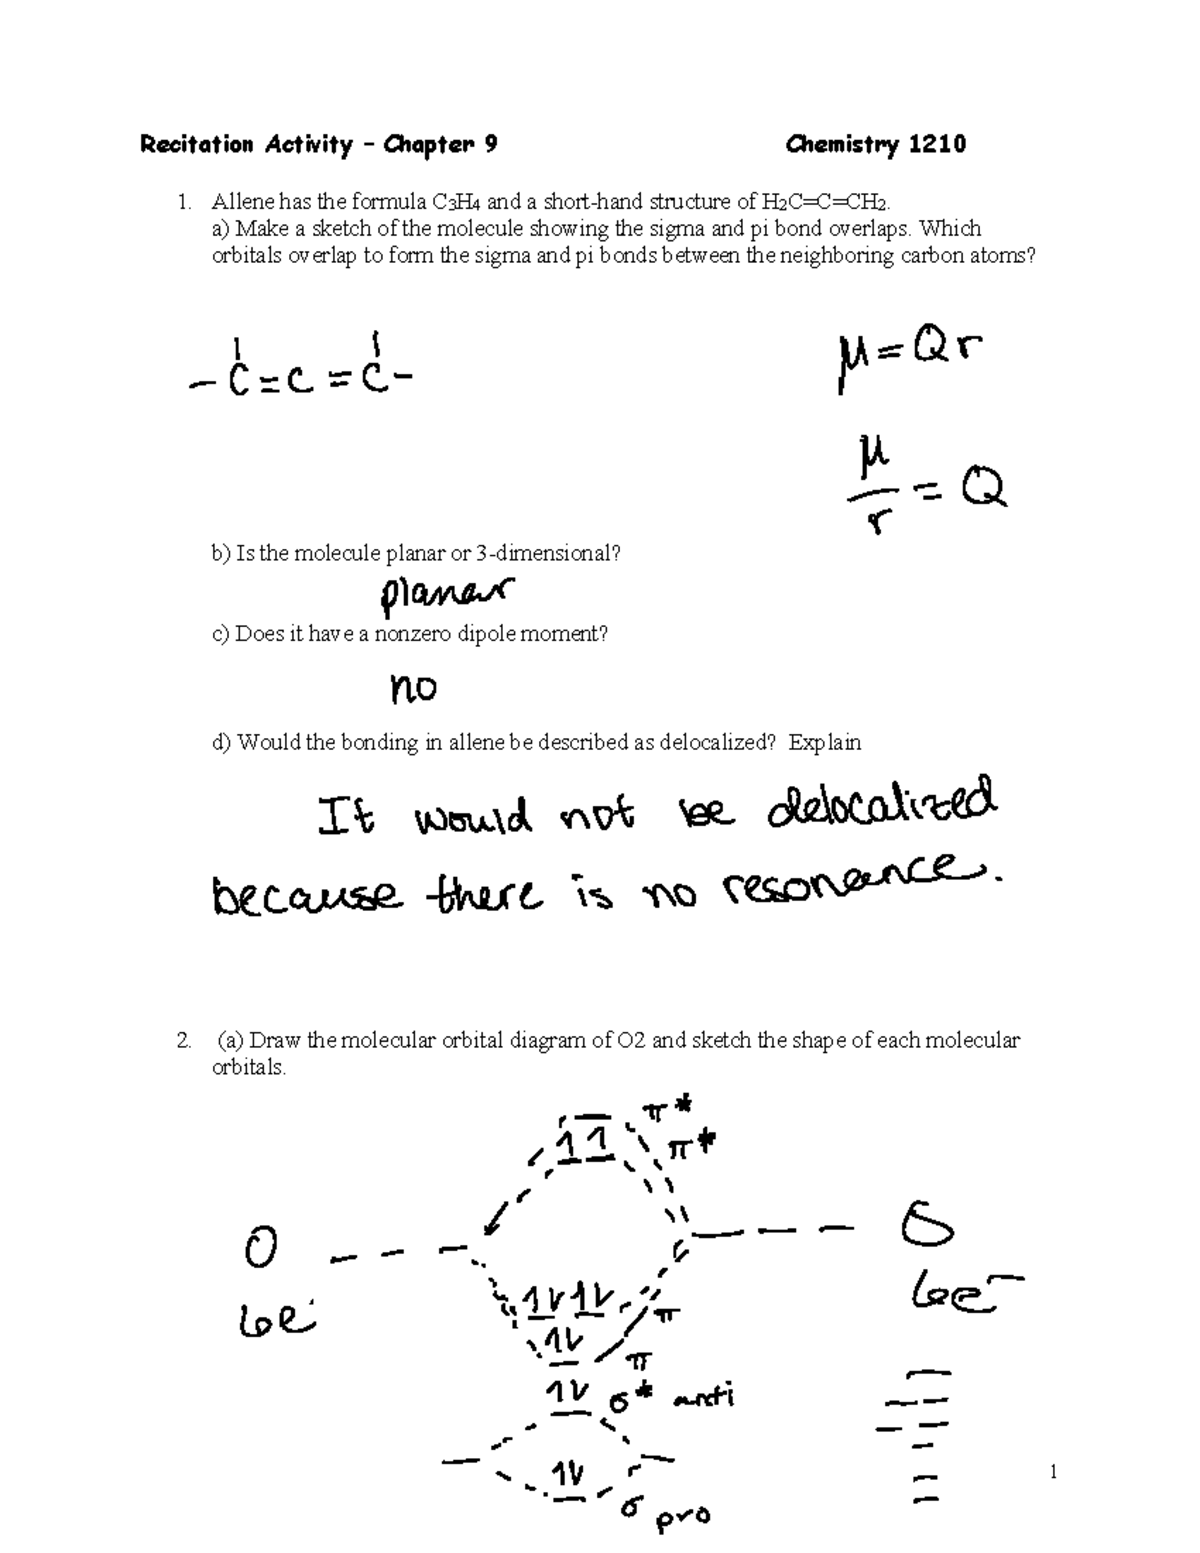 Recitation Activity – Chapter 9 Chemistry 1210
1. Allene has the formula C3H4 and a short-hand structure of H2C=C=CH2.
a) Make a sketch of the molecule showing the sigma and pi bond overlaps. Which
orbitals overlap to form the sigma and pi bonds between the neighboring carbon atoms?
μ = Qr
- C = C = C -
μ/r = Q
b) Is the molecule planar or 3-dimensional?
planar
c) Does it have a nonzero dipole moment?
no
d) Would the bonding in allene be described as delocalized? Explain
It would not be delocalized
because there is no resonance.
2. (a) Draw the molecular orbital diagram of O2 and sketch the shape of each molecular
orbitals.
π*
11 π*
O O
6e- 6e-
1v 1v π
1v π
1v σ* anti
1v
σ pro
1